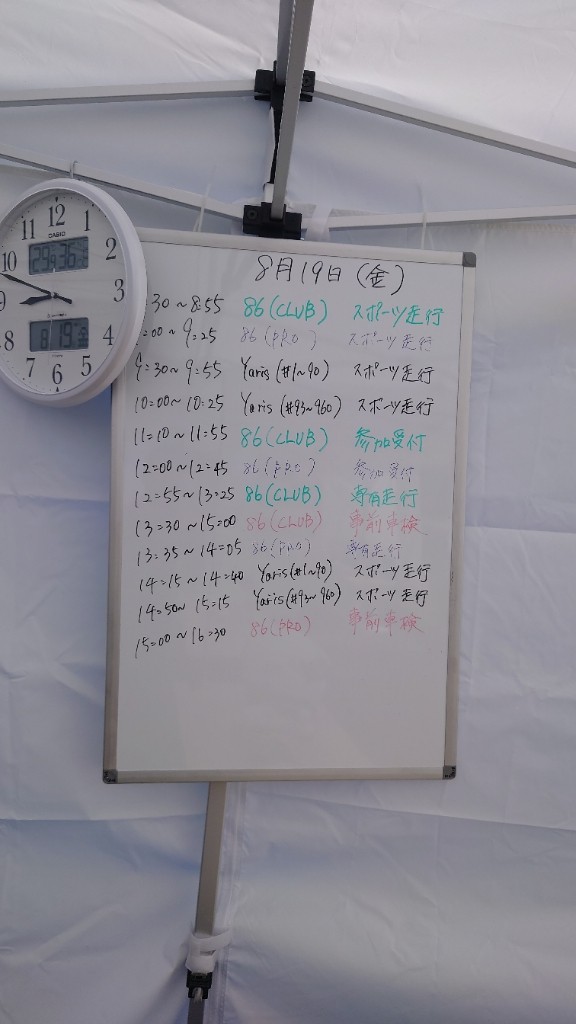 12
1
2
3
4
5
6
7
8
9
10
11
CASIO
8 19 金
8月19日 (金)
30~8:55 86(CLUB) スポーツ走行
:00~9:25 86(PRO) スポーツ走行
9:30~9:55 Yaris(#1~90) スポーツ走行
10:00~10:25 Yaris(#93~960) スポーツ走行
11:10~11:55 86(CLUB) 参加受付
12:00~12:45 86(PRO) 参加受付
12:55~13:25 86(CLUB) 専有走行
13:30~15:00 86(CLUB) 事前車検
13:35~14:05 86(PRO) 専有走行
14:15~14:40 Yaris(#1~90) スポーツ走行
14:50~15:15 Yaris(#93~960) スポーツ走行
15:00~16:30 86(PRO) 事前車検